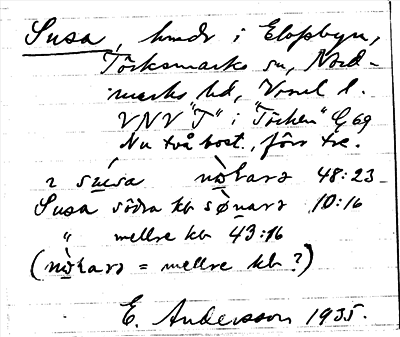 Susa, hmdr i Elofsbyn,
Töcksmarks sn, Nord-
marks hd, Vrml l.
VNV "T" i "Töcken" G 69
Nu två bost., förr tre.
48:23
Susa södra kb 10:16
" mellre kb 43:16
( = mellre kb?)
E. Andersson 1935.